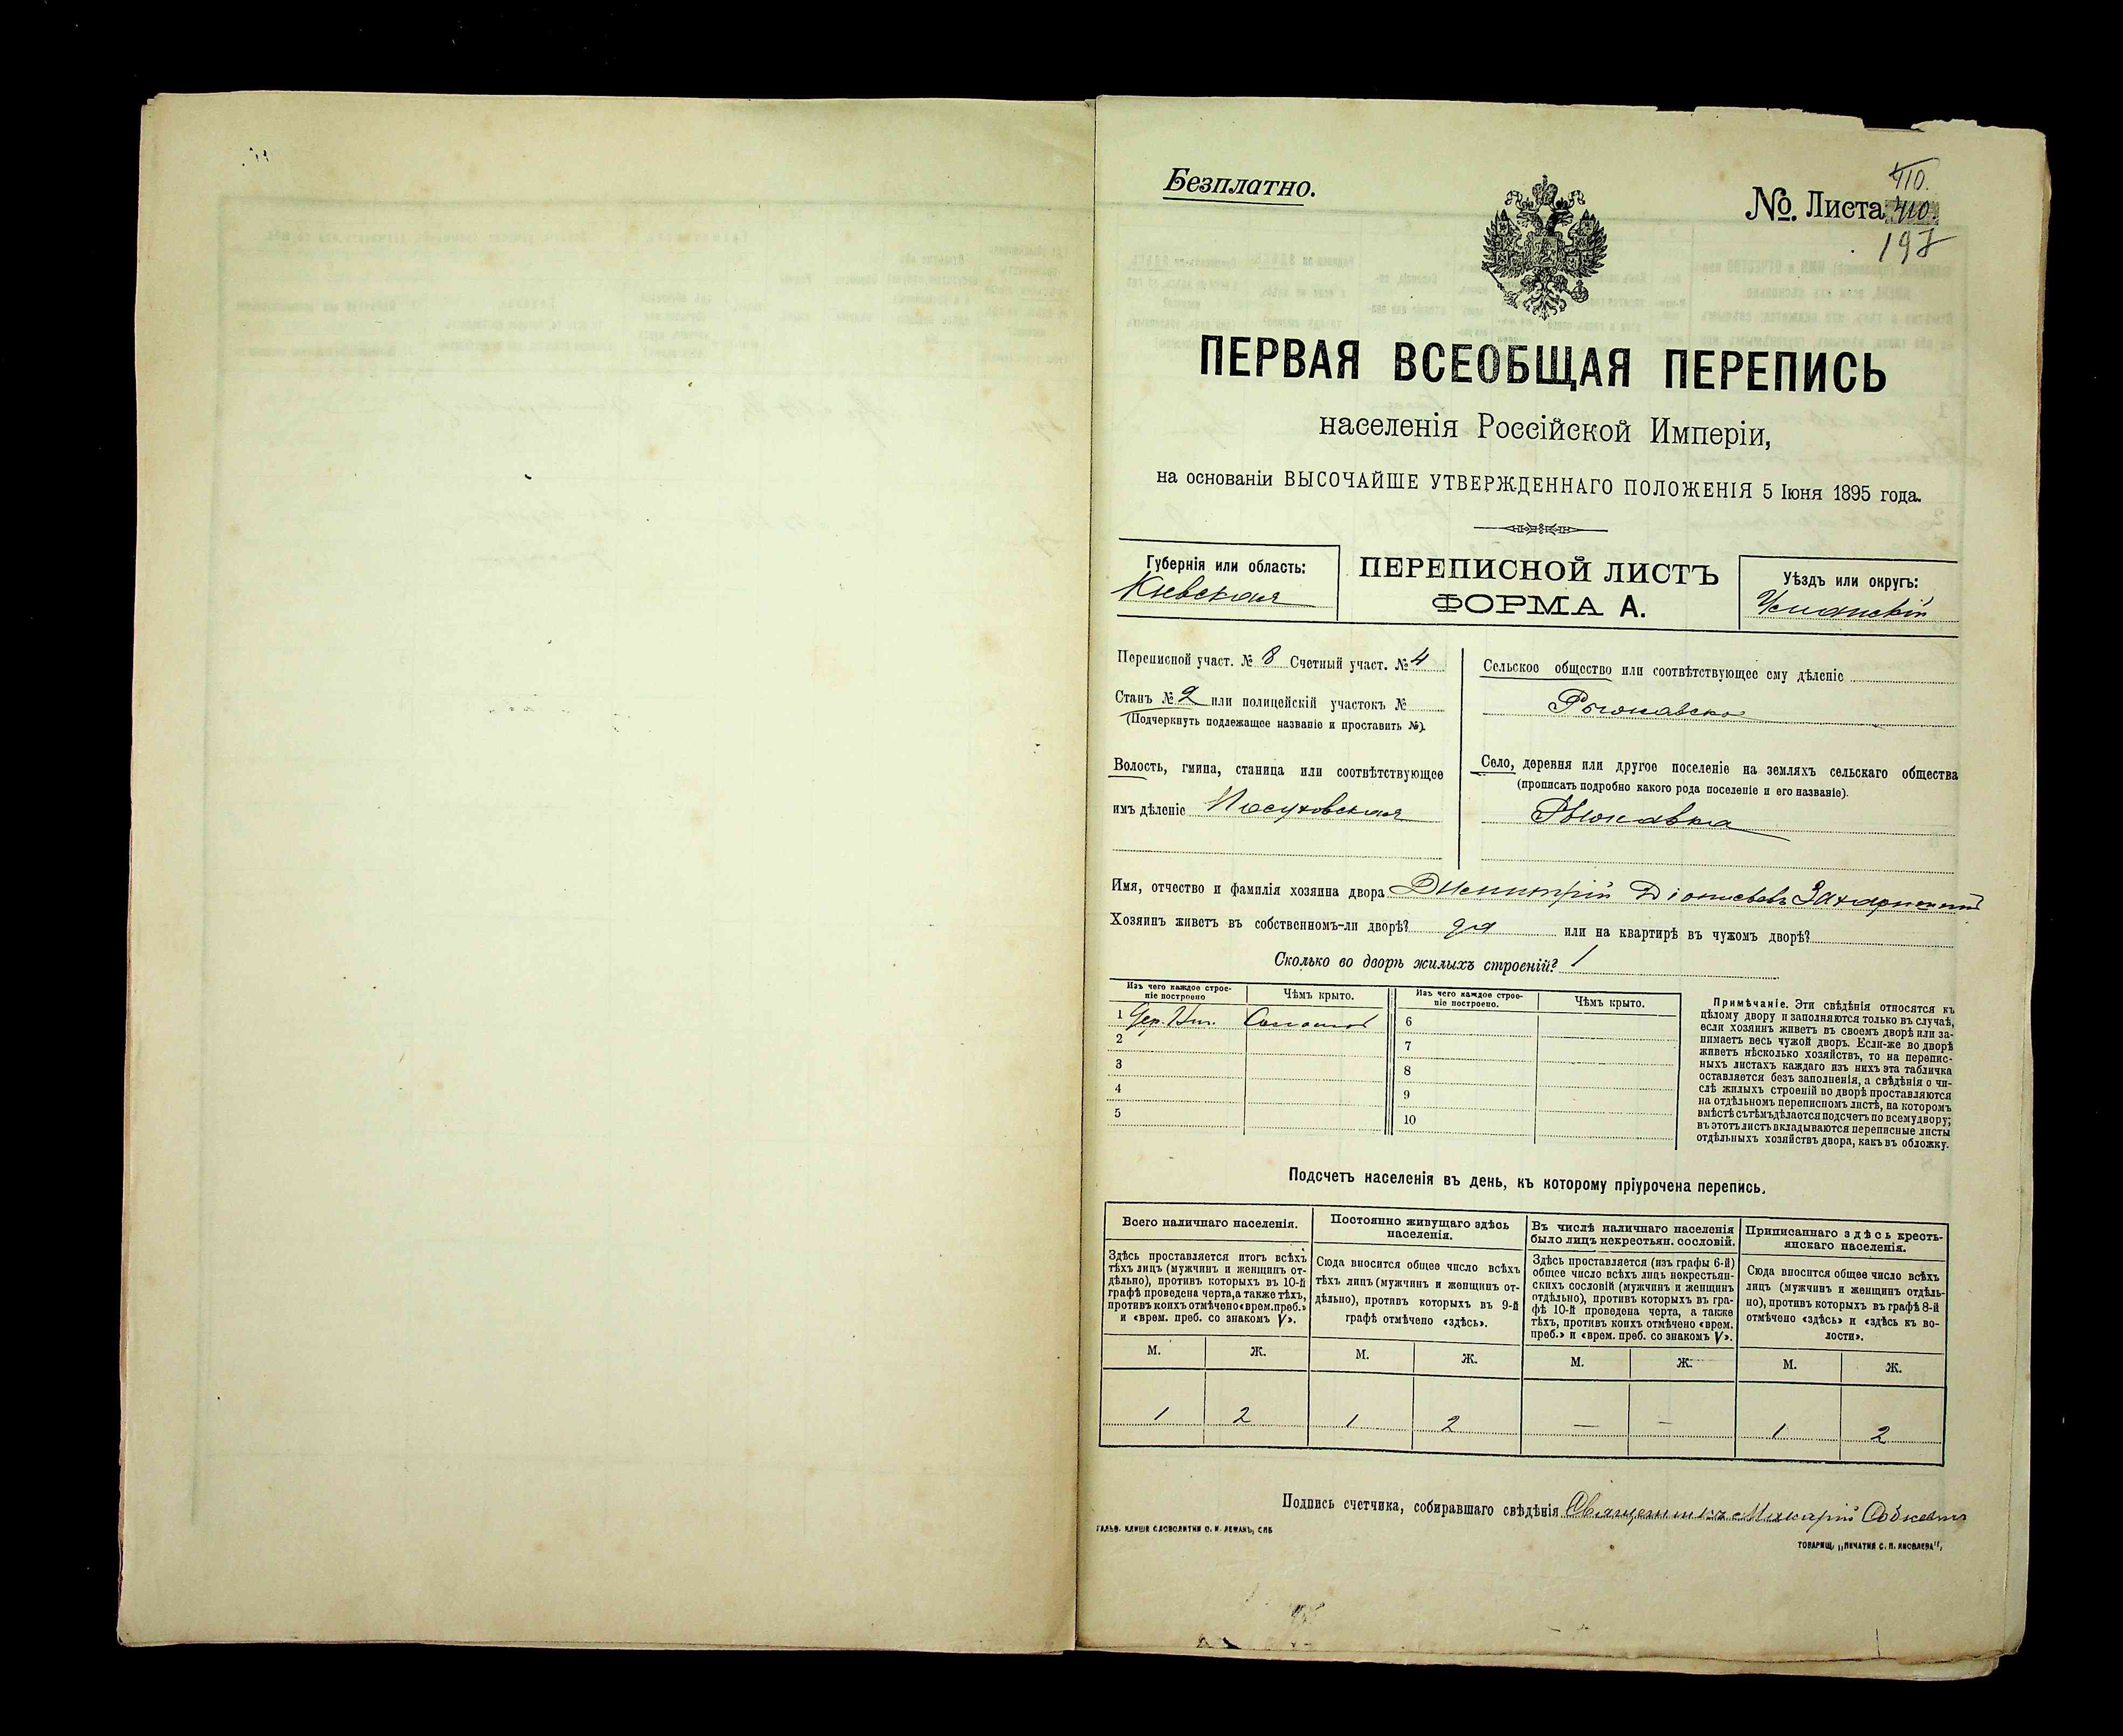 Безплатно.
№ Листа 410.
410.
197
ПЕРВАЯ ВСЕОБЩАЯ ПЕРЕПИСЬ
населенія Россійской Имперіи,
на основаніи ВЫСОЧАЙШЕ УТВЕРЖДЕННАГО ПОЛОЖЕНІЯ 5 Іюня 1895 года.
Губернія или область:
Кіевская
ПЕРЕПИСНОЙ ЛИСТЪ
ФОРМА А.
Уѣздъ или округъ:
Уманскій
Переписной участ. № 8 Счетный участ. № 4
Станъ № 2 или полицейскій участокъ №
(Подчеркнуть подлежащее названіе и проставить №).
Волость, гмина, станица или соотвѣтствующее
имъ дѣленіе Посуховская
Сельское общество или соотвѣтствующее ему дѣленіе
Село, деревня или другое поселеніе на земляхъ сельскаго общества
(прописать подробно какого рода поселеніе и его названіе).
Имя, отчество и фамилія хозяина двора Димитрій Діонисьевъ
Хозяинъ живетъ въ собственномъ-ли дворѣ? да или на квартирѣ въ чужомъ дворѣ?
Сколько во дворѣ жилыхъ строеній? 1
Изъ чего каждое строе-
ніе построено
Чѣмъ крыто.
Изъ чего каждое строе-
ніе построено.
Чѣмъ крыто.
1 Дер. Соломой
2
3
4
5
6
7
8
9
10
Примѣчаніе. Эти свѣдѣнія относятся къ
цѣлому двору и заполняются только въ случаѣ,
если хозяинъ живетъ въ своемъ дворѣ или за-
нимаетъ весь чужой дворъ. Если-же во дворѣ
живетъ нѣсколько хозяйствъ, то на перепис-
ныхъ листахъ каждаго изъ нихъ эта табличка
оставляется безъ заполненія, а свѣдѣнія о чи-
слѣ жилыхъ строеній во дворѣ проставляются
на отдѣльномъ переписномъ листѣ, на которомъ
вмѣстѣ съ тѣмъ дѣлается подсчетъ по всему двору;
въ этотъ листъ вкладываются переписные листы
отдѣльныхъ хозяйствъ двора, какъ въ обложку.
Подсчетъ населенія въ день, къ которому пріурочена перепись.
Всего наличнаго населенія.
Здѣсь проставляется итогъ всѣхъ
тѣхъ лицъ (мужчинъ и женщинъ от-
дѣльно), противъ которыхъ въ 10-й
графѣ проведена черта, а также тѣхъ,
противъ коихъ отмѣчено «врем. преб.»
и «врем. преб. со знакомъ V».
Постоянно живущаго здѣсь
населенія.
Сюда вносится общее число всѣхъ
тѣхъ лицъ (мужчинъ и женщинъ от-
дѣльно), противъ которыхъ въ 9-й
графѣ отмѣчено «здѣсь».
Въ числѣ наличнаго населенія
было лицъ некрестьян. сословій.
Здѣсь проставляется (изъ графы 6-й)
общее число всѣхъ лицъ некрестьян-
скихъ сословій (мужчинъ и женщинъ
отдѣльно), противъ которыхъ въ гра-
фѣ 10-й проведена черта, а также
тѣхъ, противъ коихъ отмѣчено «врем.
преб.» и «врем. преб. со знакомъ V».
Приписаннаго здѣсь кресть-
янскаго населенія.
Сюда вносится общее число всѣхъ
лицъ (мужчинъ и женщинъ отдѣль-
но), противъ которыхъ въ графѣ 8-й
отмѣчено «здѣсь» и «здѣсь къ во-
лости».
М. Ж. М. Ж. М. Ж. М. Ж.
1 2 1 2 — — 1 2
Подпись счетчика, собиравшаго свѣдѣнія Священникъ Макарій
ГАЛЬВ. КЛИШЕ СЛОВОЛИТНИ О. И. ЛЕМАНЪ, СПБ
ТОВАРИЩ. „ПЕЧАТНЯ С. П. ЯКОВЛЕВА".